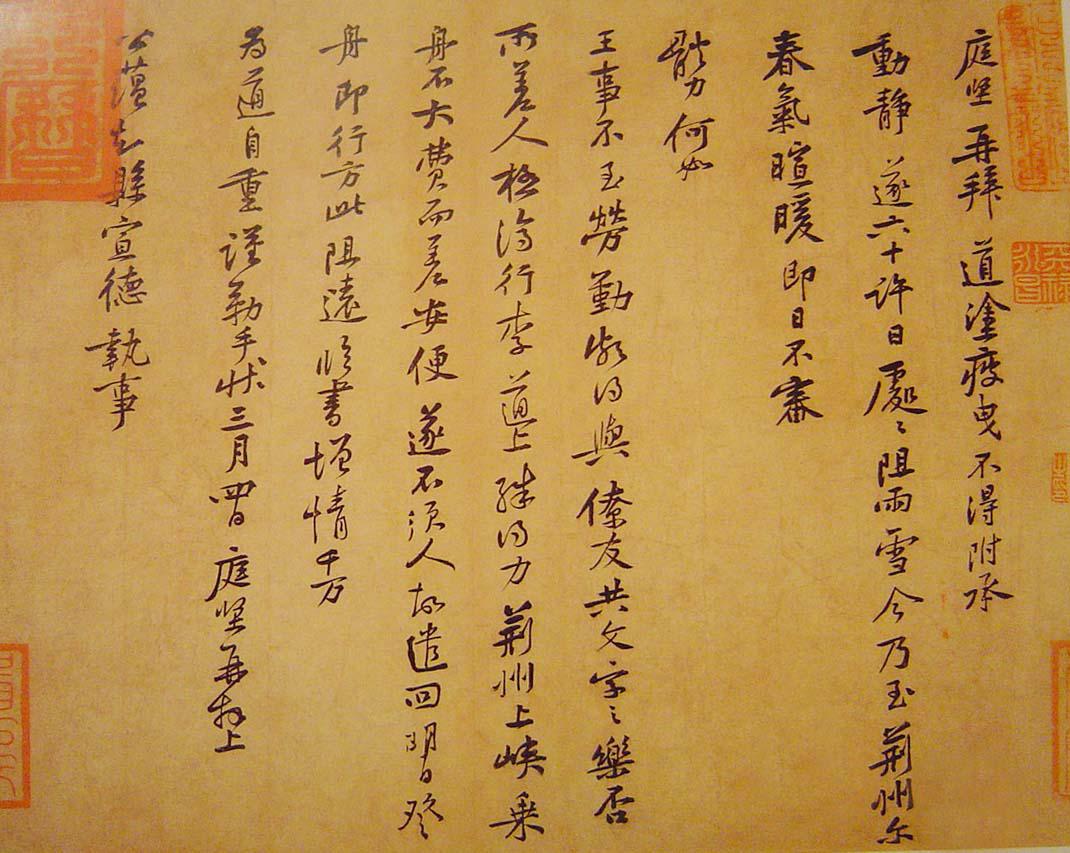 庭坚再拜道塗疲曳不得附承
動静遂六十許日處〻阻雨雪今乃至荆州尔
春氣暄暖即日不審
體力何如
王事不至勞勤頗得與僚友共文字之樂否
所差人極濟行李道上殊得力荆州上峡乗
舟不大費而差安便遂不須人故遣回明日癸
舟即行方此阻遠臨書增情千万
为道自重謹勒手状三月四日庭坚再拜上
公藴知縣宣德執事